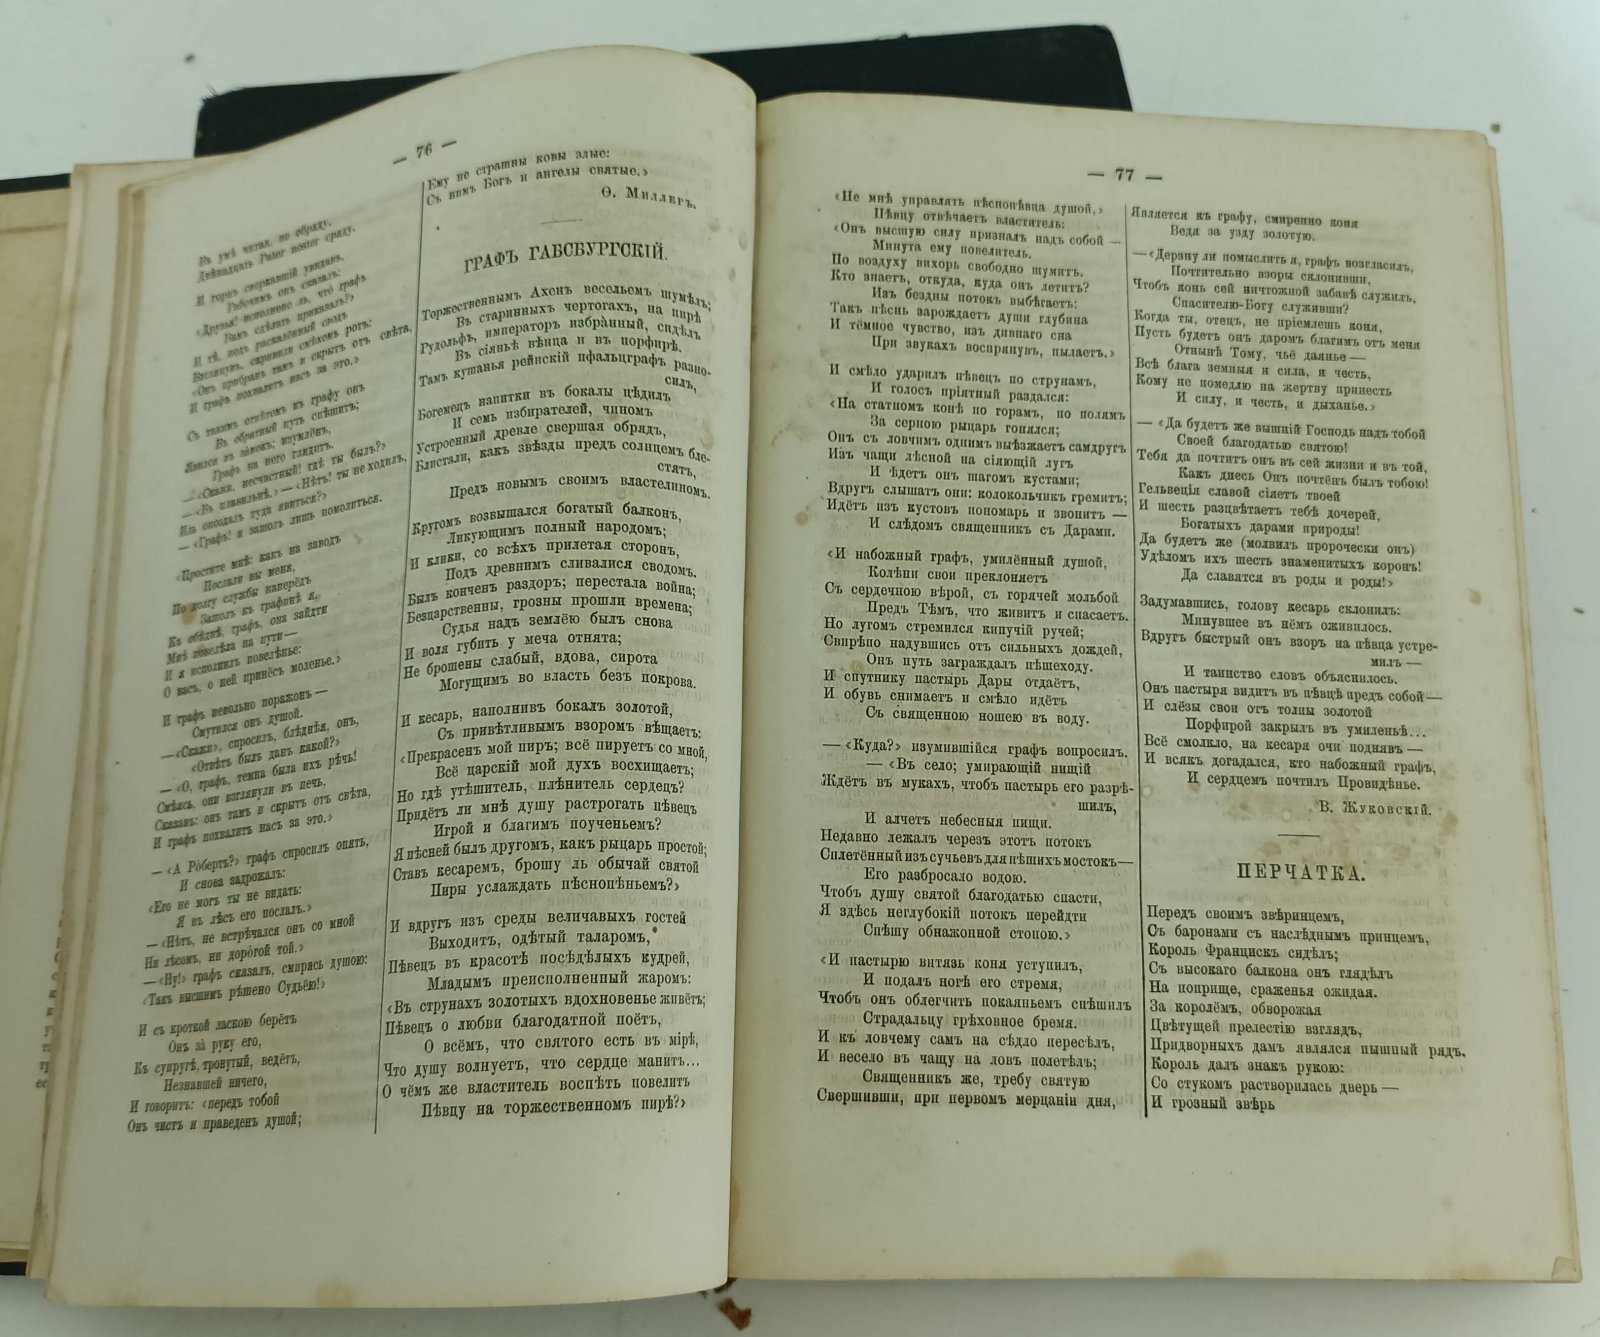 — 76 —
Въ умѣ читая, по обряду,
Двѣнадцать Pater noster сряду.
И горнъ сверкавшій увидавъ,
Рабочимъ онъ сказалъ:
«Друзья! исполнено ль, что графъ
Вамъ сдѣлать приказалъ?»
И тѣ, подъ раскалённый сводъ
Взглянувъ, скрививши смѣхомъ ротъ:
«Онъ прибранъ тамъ и скрытъ отъ свѣта,
И графъ похвалитъ насъ за это.»
Съ такимъ отвѣтомъ къ графу онъ
Въ обратный путь спѣшитъ;
Явился въ замокъ; изумлёнъ,
Графъ на него глядитъ.
— «Скажи, несчастный! гдѣ ты былъ?»
— «Въ плавильнѣ.» — «Нѣтъ! ты не ходилъ,
Иль опоздалъ туда явиться?»
— «Графъ! я зашолъ лишь помолиться.
«Простите мнѣ: какъ на заводъ
Послали вы меня,
По долгу службы напередъ
Зашолъ къ графинѣ я.
Къ обѣднѣ, графъ, она зайдти
Мнѣ повелѣла на пути —
И я исполнилъ повелѣнье:
О васъ, о ней принёсъ моленье.»
И графъ невольно поражонъ —
Смутился онъ душой.
— «Скажи», спросилъ, блѣднѣя, онъ,
«Отвѣтъ былъ данъ какой?»
— «О, графъ, темна была ихъ рѣчь!
Смѣясь, они взглянули въ печь,
Сказавъ: онъ тамъ и скрытъ отъ свѣта,
И графъ похвалитъ насъ за это.»
— «А Робертъ?» графъ спросилъ опять,
И снова задрожалъ:
«Его не могъ ты не видать:
Я въ лѣсъ его послалъ.»
— «Нѣтъ, не встрѣчался онъ со мной
Ни лѣсомъ, ни дорогой той.»
— «Ну!» графъ сказалъ, смирясь душою:
«Такъ высшимъ рѣшено Судьёю!»
И съ кроткой ласкою берётъ
Онъ за руку его,
Къ супругѣ, тронутый, ведётъ,
Незнавшей ничего,
И говоритъ: «передъ тобой
Онъ чистъ и праведенъ душой;
Ему не страшны ковы злые:
Съ нимъ Богъ и ангелы святые.»
Ѳ. Миллеръ.
ГРАФЪ ГАБСБУРГСКІЙ.
Торжественнымъ Ахенъ весельемъ шумѣлъ;
Въ старинныхъ чертогахъ, на пирѣ
Рудольфъ, императоръ избранный, сидѣлъ
Въ сіяньѣ вѣнца и въ порфирѣ.
Тамъ кушанья рейнскій пфальцграфъ разно-
силъ,
Богемецъ напитки въ бокалы цѣдилъ
И семь избирателей, чиномъ
Устроенный древле свершая обрядъ,
Блистали, какъ звѣзды предъ солнцемъ бле-
стятъ,
Предъ новымъ своимъ властелиномъ.
Кругомъ возвышался богатый балконъ,
Ликующимъ полный народомъ;
И клики, со всѣхъ прилетая сторонъ,
Подъ древнимъ сливалися сводомъ.
Былъ конченъ раздоръ; перестала война;
Безцарственны, грозны прошли времена;
Судья надъ землёю былъ снова
И воля губить у меча отнята;
Не брошены слабый, вдова, сирота
Могущимъ во власть безъ покрова.
И кесарь, наполнивъ бокалъ золотой,
Съ привѣтливымъ взоромъ вѣщаетъ:
«Прекрасенъ мой пиръ; всё пируетъ со мной,
Всё царскій мой духъ восхищаетъ;
Но гдѣ утѣшитель, плѣнитель сердецъ?
Придётъ ли мнѣ душу растрогать пѣвецъ
Игрой и благимъ поученьемъ?
Я пѣсней былъ другомъ, какъ рыцарь простой;
Ставъ кесаремъ, брошу ль обычай святой
Пиры услаждать пѣснопѣньемъ?»
И вдругъ изъ среды величавыхъ гостей
Выходитъ, одѣтый таларомъ,
Пѣвецъ въ красотѣ посѣдѣлыхъ кудрей,
Младымъ преисполненный жаромъ:
«Въ струнахъ золотыхъ вдохновенье живётъ;
Пѣвецъ о любви благодатной поётъ,
О всёмъ, что святого есть въ мірѣ,
Что душу волнуетъ, что сердце манитъ...
О чёмъ же властитель воспѣть повелитъ
Пѣвцу на торжественномъ пирѣ?»
— 77 —
«Не мнѣ управлять пѣснопѣвца душой,»
Пѣвцу отвѣчаетъ властитель:
«Онъ высшую силу призналъ надъ собой —
Минута ему повелитель.
По воздуху вихорь свободно шумитъ.
Кто знаетъ, откуда, куда онъ летитъ?
Изъ бездны потокъ выбѣгаетъ:
Такъ пѣснь зарождаетъ души глубина
И тёмное чувство, изъ дивнаго сна
При звукахъ воспрянувъ, пылаетъ.»
И смѣло ударилъ пѣвецъ по струнамъ,
И голосъ пріятный раздался:
«На статномъ конѣ по горамъ, по полямъ
За серною рыцарь гонялся;
Онъ съ ловчимъ однимъ выѣзжаетъ самдругъ
Изъ чащи лѣсной на сіяющій лугъ
И ѣдетъ онъ шагомъ кустами;
Вдругъ слышатъ они: колокольчикъ гремитъ;
Идётъ изъ кустовъ пономарь и звонитъ —
И слѣдомъ священникъ съ Дарами.
«И набожный графъ, умилённый душой,
Колѣни свои преклоняетъ
Съ сердечною вѣрой, съ горячей мольбой
Предъ Тѣмъ, что живитъ и спасаетъ.
Но лугомъ стремился кипучій ручей;
Свирѣпо надувшись отъ сильныхъ дождей,
Онъ путь заграждалъ пѣшеходу.
И спутнику пастырь Дары отдаётъ,
И обувь снимаетъ и смѣло идётъ
Съ священною ношею въ воду.
— «Куда?» изумившійся графъ вопросилъ.
— «Въ село; умирающій нищій
Ждётъ въ мукахъ, чтобъ пастырь его разрѣ-
шилъ,
И алчетъ небесныя пищи.
Недавно лежалъ черезъ этотъ потокъ
Сплетённый изъ сучьевъ для пѣшихъ мостокъ —
Его разбросало водою.
Чтобъ душу святой благодатью спасти,
Я здѣсь неглубокій потокъ перейдти
Спѣшу обнажонной стопою.»
«И пастырю витязь коня уступилъ,
И подалъ ногѣ его стремя,
Чтобъ онъ облегчить покаяньемъ спѣшилъ
Страдальцу грѣховное бремя.
И къ ловчему самъ на сѣдло пересѣлъ,
И весело въ чащу на ловъ полетѣлъ;
Священникъ же, требу святую
Свершивши, при первомъ мерцаніи дня,
Является къ графу, смиренно коня
Ведя за узду золотую.
— «Дерзну ли помыслить я, графъ возгласилъ,
Почтительно взоры склонивши,
Чтобъ конь сей ничтожной забавѣ служилъ,
Спасителю-Богу служивши?
Когда ты, отецъ, не пріемлешь коня,
Пусть будетъ онъ даромъ благимъ отъ меня
Отнынѣ Тому, чьё даянье —
Всѣ блага земныя и сила, и честь,
Кому не помедлю на жертву принесть
И силу, и честь, и дыханье.»
— «Да будетъ же вышній Господь надъ тобой
Своей благодатью святою!
Тебя да почтитъ онъ въ сей жизни и въ той,
Какъ днесь Онъ почтёнъ былъ тобою!
Гельвеція славой сіяетъ твоей
И шесть разцвѣтаетъ тебѣ дочерей,
Богатыхъ дарами природы!
Да будетъ же (молвилъ пророчески онъ)
Удѣломъ ихъ шесть знаменитыхъ коронъ!
Да славятся въ роды и роды!»
Задумавшись, голову кесарь склонилъ:
Минувшее въ нёмъ оживилось.
Вдругъ быстрый онъ взоръ на пѣвца устре-
милъ —
И таинство словъ объяснилось.
Онъ пастыря видитъ въ пѣвцѣ предъ собой —
И слёзы свои отъ толпы золотой
Порфирой закрылъ въ умиленьѣ...
Всё смолкло, на кесаря очи поднявъ —
И всякъ догадался, кто набожный графъ,
И сердцемъ почтилъ Провидѣнье.
В. Жуковскій.
ПЕРЧАТКА.
Передъ своимъ звѣринцемъ,
Съ баронами съ наслѣднымъ принцемъ,
Король Францискъ сидѣлъ;
Съ высокаго балкона онъ глядѣлъ
На поприще, сраженья ожидая.
За королёмъ, обворожая
Цвѣтущей прелестію взглядъ,
Придворныхъ дамъ являлся пышный рядъ.
Король далъ знакъ рукою:
Со стукомъ растворилась дверь —
И грозный звѣрь